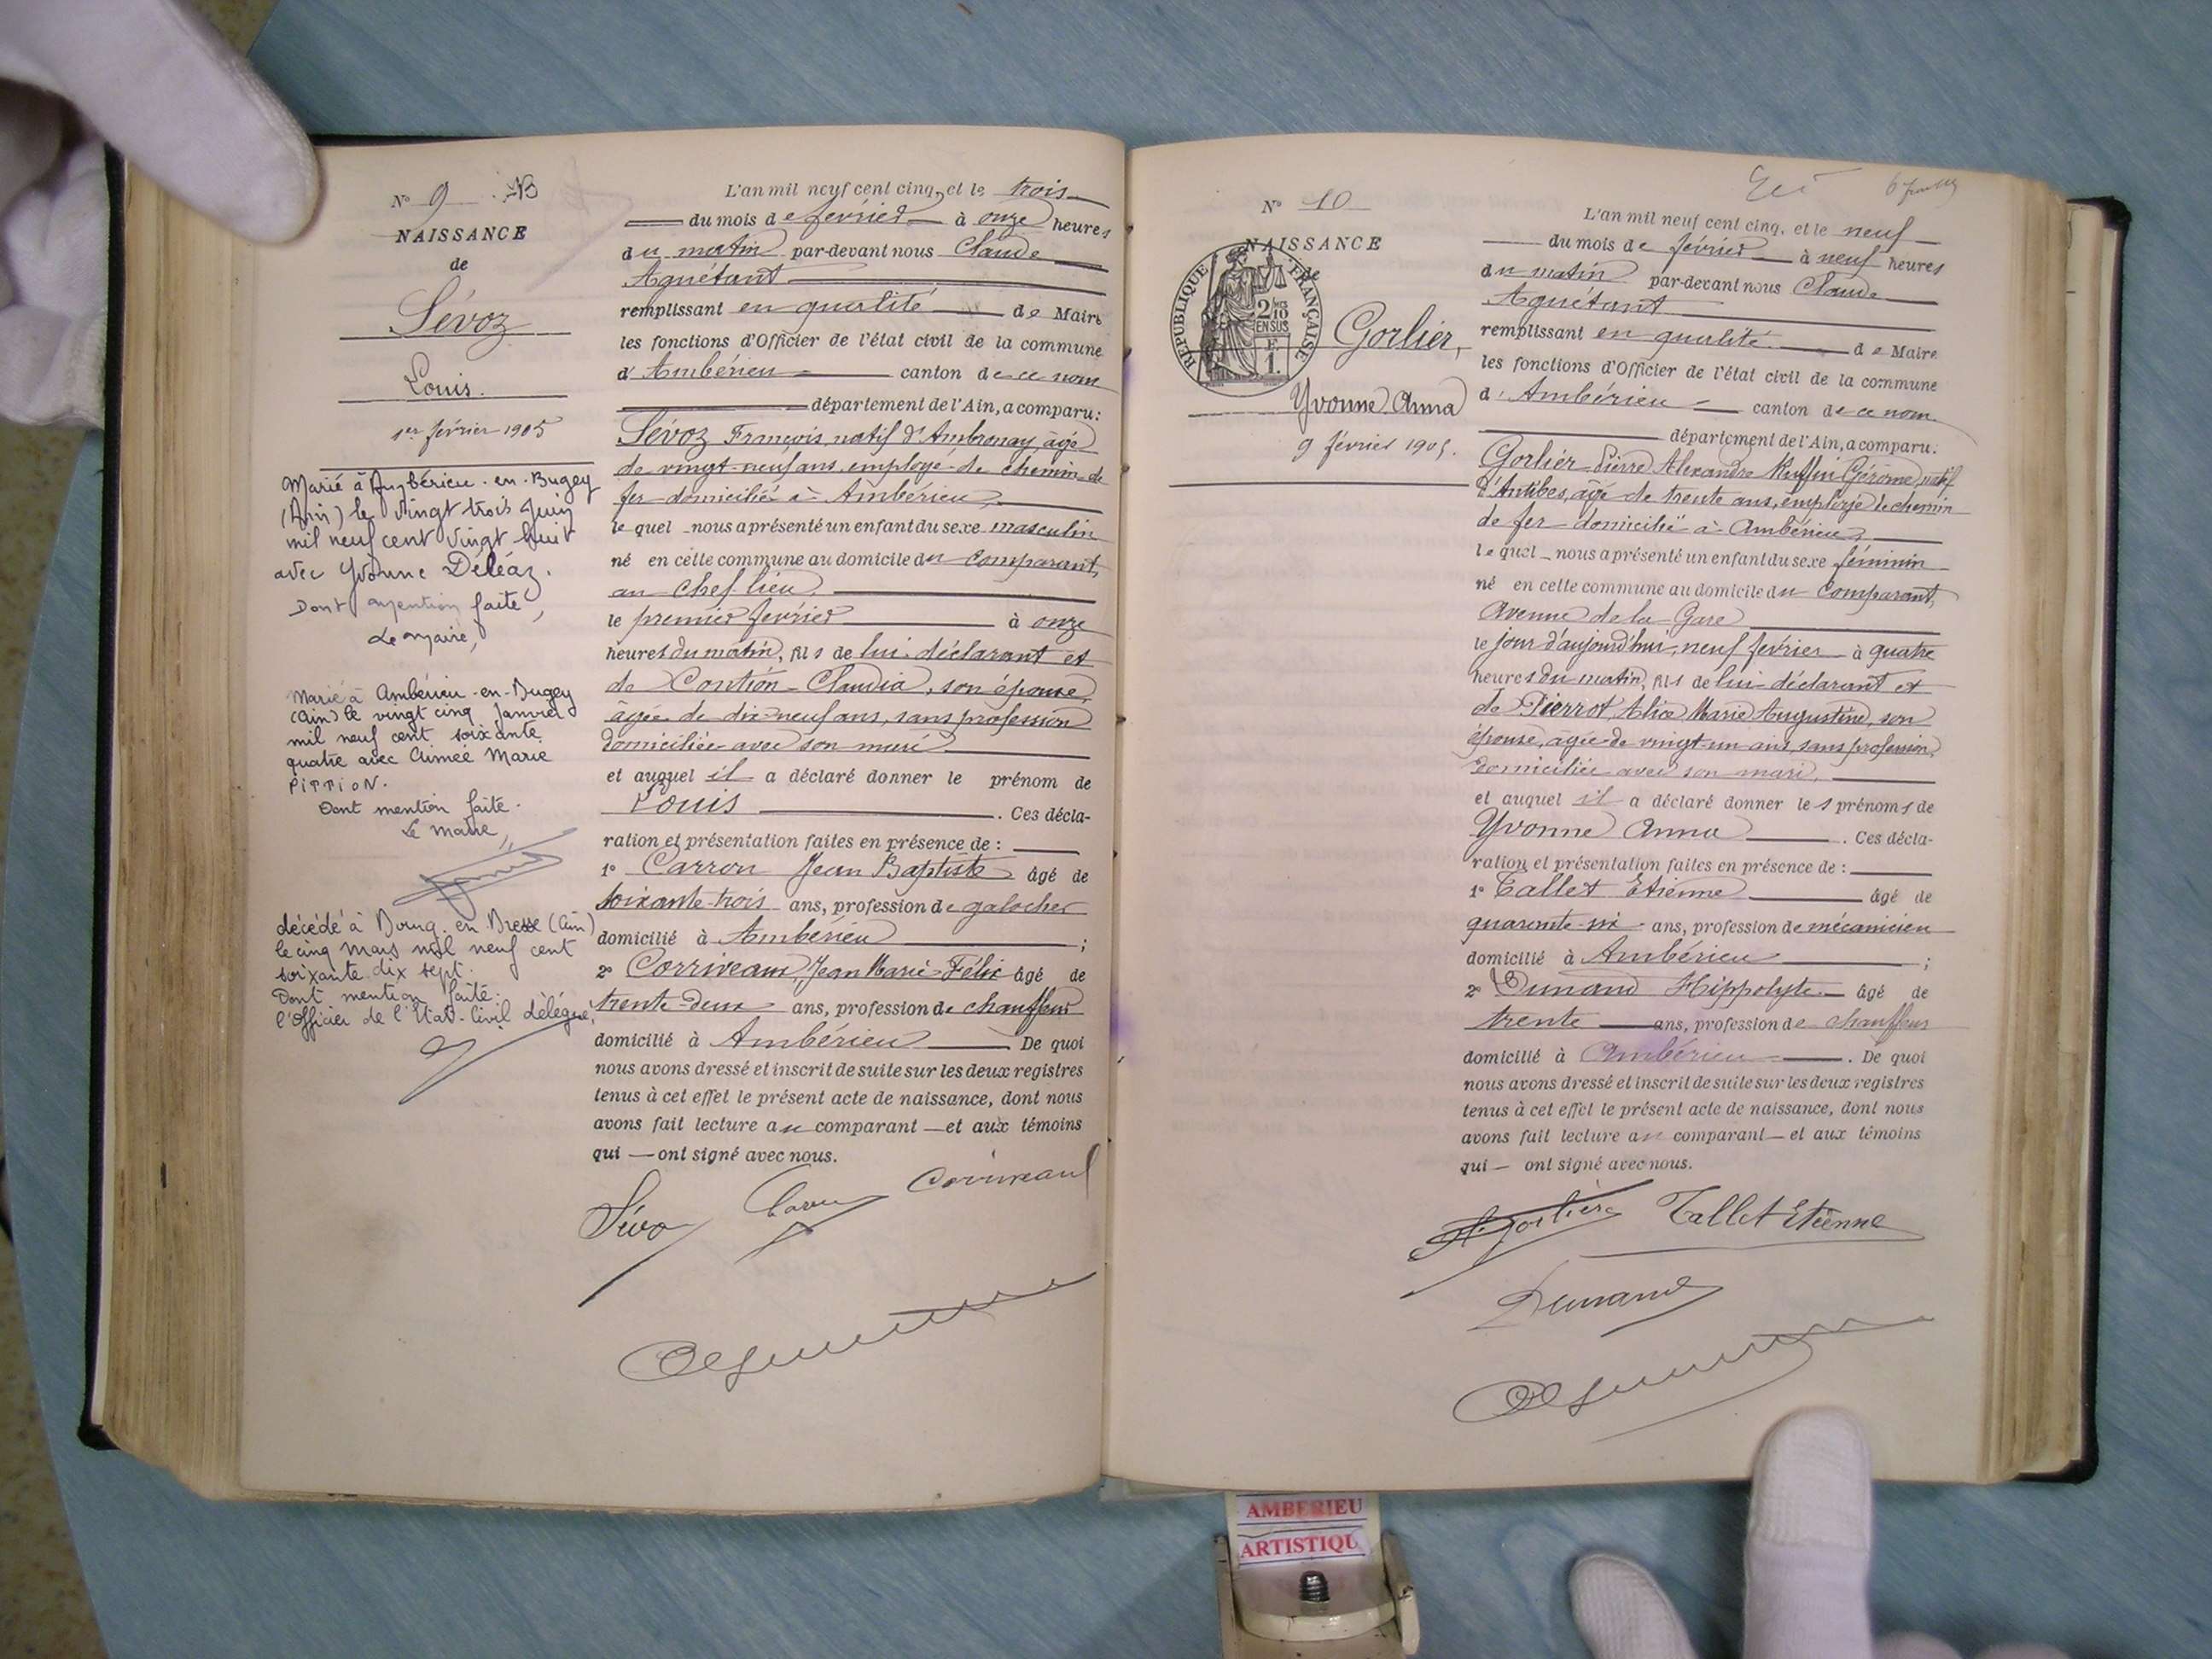 N° 9
NAISSANCE
de
Sévoz
Louis.
1er février 1905
Marié à Ambérieu-en-Bugey
(Ain) le vingt trois Juin
mil neuf cent vingt huit
avec Yvonne Déléaz.
Dont mention faite,
Le maire,
Marié à Ambérieu-en-Bugey
(Ain) le vingt cinq Janvier
mil neuf cent soixante
quatre avec Aimée Marie
PITTION.
Dont mention faite.
Le maire,
décédé à Bourg-en-Bresse (Ain)
le cinq mars mil neuf cent
soixante dix sept.
Dont mention faite.
l'Officier de l'Etat-Civil délégué,
L'an mil neuf cent cinq, et le trois
du mois de février à onze heures
du matin par-devant nous Claude
Aguétant
remplissant en qualité de Maire
les fonctions d'Officier de l'état civil de la commune
d'Ambérieu canton de ce nom
département de l'Ain, a comparu:
Sévoz François, natif d'Ambronay, âgé
de vingt-neuf ans, employé de chemin de
fer domicilié à Ambérieu,
lequel nous a présenté un enfant du sexe masculin
né en cette commune au domicile du comparant,
au chef-lieu,
le premier février à onze
heures du matin, fils de lui déclarant et
de Contion Claudia, son épouse,
âgée de dix-neuf ans, sans profession
domiciliée avec son mari
et auquel il a déclaré donner le prénom de
Louis. Ces décla-
ration et présentation faites en présence de :
1° Carron Jean Baptiste âgé de
soixante-trois ans, profession de galocher
domicilié à Ambérieu ;
2° Corriveaux, Jean Marie Félix âgé de
trente-deux ans, profession de chauffeur
domicilié à Ambérieu De quoi
nous avons dressé et inscrit de suite sur les deux registres
tenus à cet effet le présent acte de naissance, dont nous
avons fait lecture au comparant et aux témoins
qui ont signé avec nous.
Sévoz Carron Corriveaux
N° 10
NAISSANCE
de
RÉPUBLIQUE FRANÇAISE
2/10
EN SUS
F.
1.
Gorlier,
Yvonne Anna
9 février 1905.
L'an mil neuf cent cinq, et le neuf
du mois de février à neuf heures
du matin par-devant nous Claude
Aguétant
remplissant en qualité de Maire
les fonctions d'Officier de l'état civil de la commune
d'Ambérieu canton de ce nom
département de l'Ain, a comparu:
Gorlier Pierre Alexandre Ruffin Gérôme, natif
d'Antibes, âgé de trente ans, employé de chemin
de fer domicilié à Ambérieu,
lequel nous a présenté un enfant du sexe féminin
né en cette commune au domicile du comparant,
Avenue de la Gare
le jour d'aujourd'hui, neuf février à quatre
heures du matin, fils de lui déclarant et
de Pierrot, Alice Marie Augustine, son
épouse, âgée de vingt-un ans, sans profession,
domiciliée avec son mari,
et auquel il a déclaré donner les prénoms de
Yvonne Anna. Ces décla-
ration et présentation faites en présence de :
1° Tallet Etienne âgé de
quarante-six ans, profession de mécanicien
domicilié à Ambérieu ;
2° Dunand Hippolyte âgé de
trente ans, profession de chauffeur
domicilié à Ambérieu. De quoi
nous avons dressé et inscrit de suite sur les deux registres
tenus à cet effet le présent acte de naissance, dont nous
avons fait lecture au comparant et aux témoins
qui ont signé avec nous.
Gorlier Tallet Etienne
Dunand
AMBERIEU
ARTISTIQU